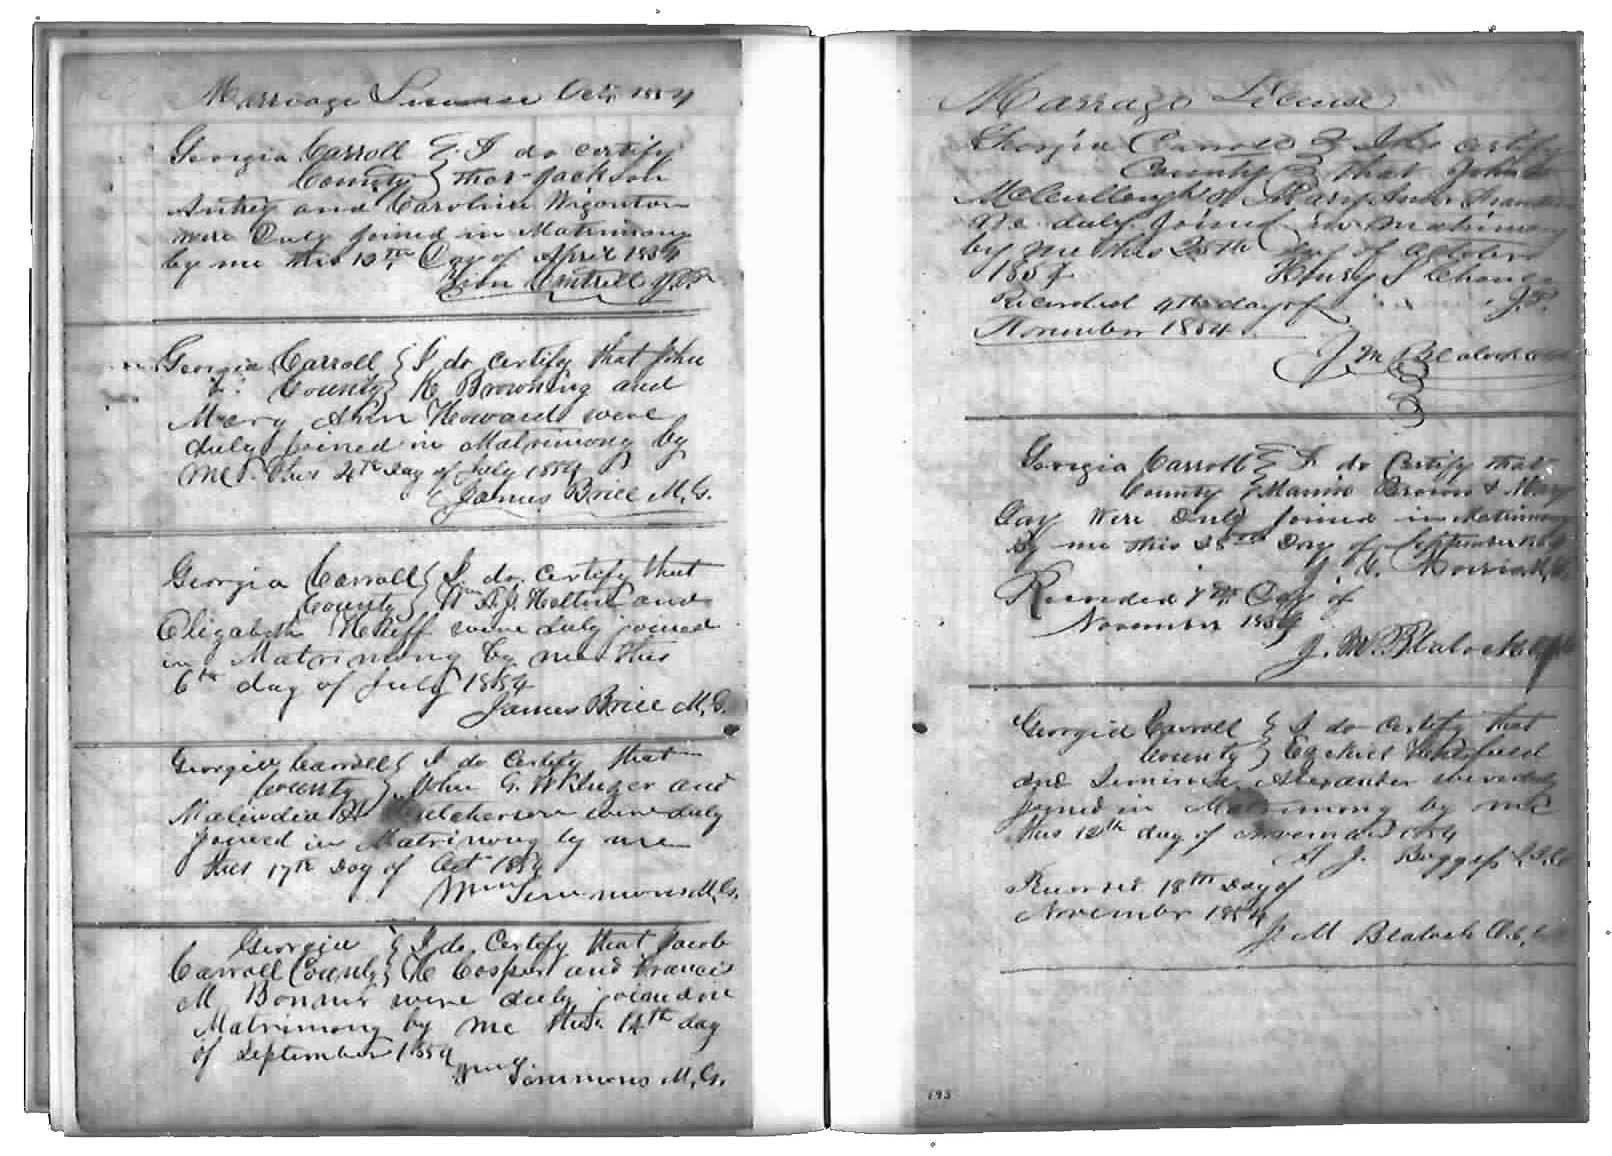 Marriage License Oct, 1854
Georgia Carroll } I do certify
County } that Jackson
Autrey and Caroline Wigonton
were Duly joined in Matrimony
by me this 10th Day of April 1854
Cantrell J.P.
Georgia Carroll } I do certify that John
County } R Browning and
Mary Ann Howard were
duly joined in Matrimony by
me this 4th Day of July 1854
James Brice M.G.
Georgia Carroll } I do certify that
County } Wm A.J. Holton and
Elizabeth were duly joined
in Matrimony by me this
6th day of July 1854
James Brice M.G.
Georgia Carroll } I do Certify that
County } John G. and
Malindia were duly
joined in Matrimony by me
this 17th Day of Oct 1854
Wm Simmons M.G.
Georgia } I do Certify that Jacob
Carroll County } H Cosper and Francis
M Bonner were duly joined in
Matrimony by me this 14th day
of September 1854
Wm Simmons M.G.
Marrage License
Georgia Carroll } I do certify
County } that John
McCullough & Mary Ann
duly joined in matrimony
by me this 25th day of October
1854 Henry S
Recorded 4th day of J.P.
November 1854
J M Blalock
Georgia Carroll } I do Certify that
County } Brown & Mary
Gay Were Duly joined in Matrimony
by me this 28th Day of September
J.
Recorded 7th Day of
November 1854
J. M. Blalock
Georgia Carroll } I do certify that
County } Ezekiel
and Alexander were duly
joined in Matrimony by me
this 12th day of November 1854
A J. Boggess
18th Day of
November 1854
J. M Blalock
193